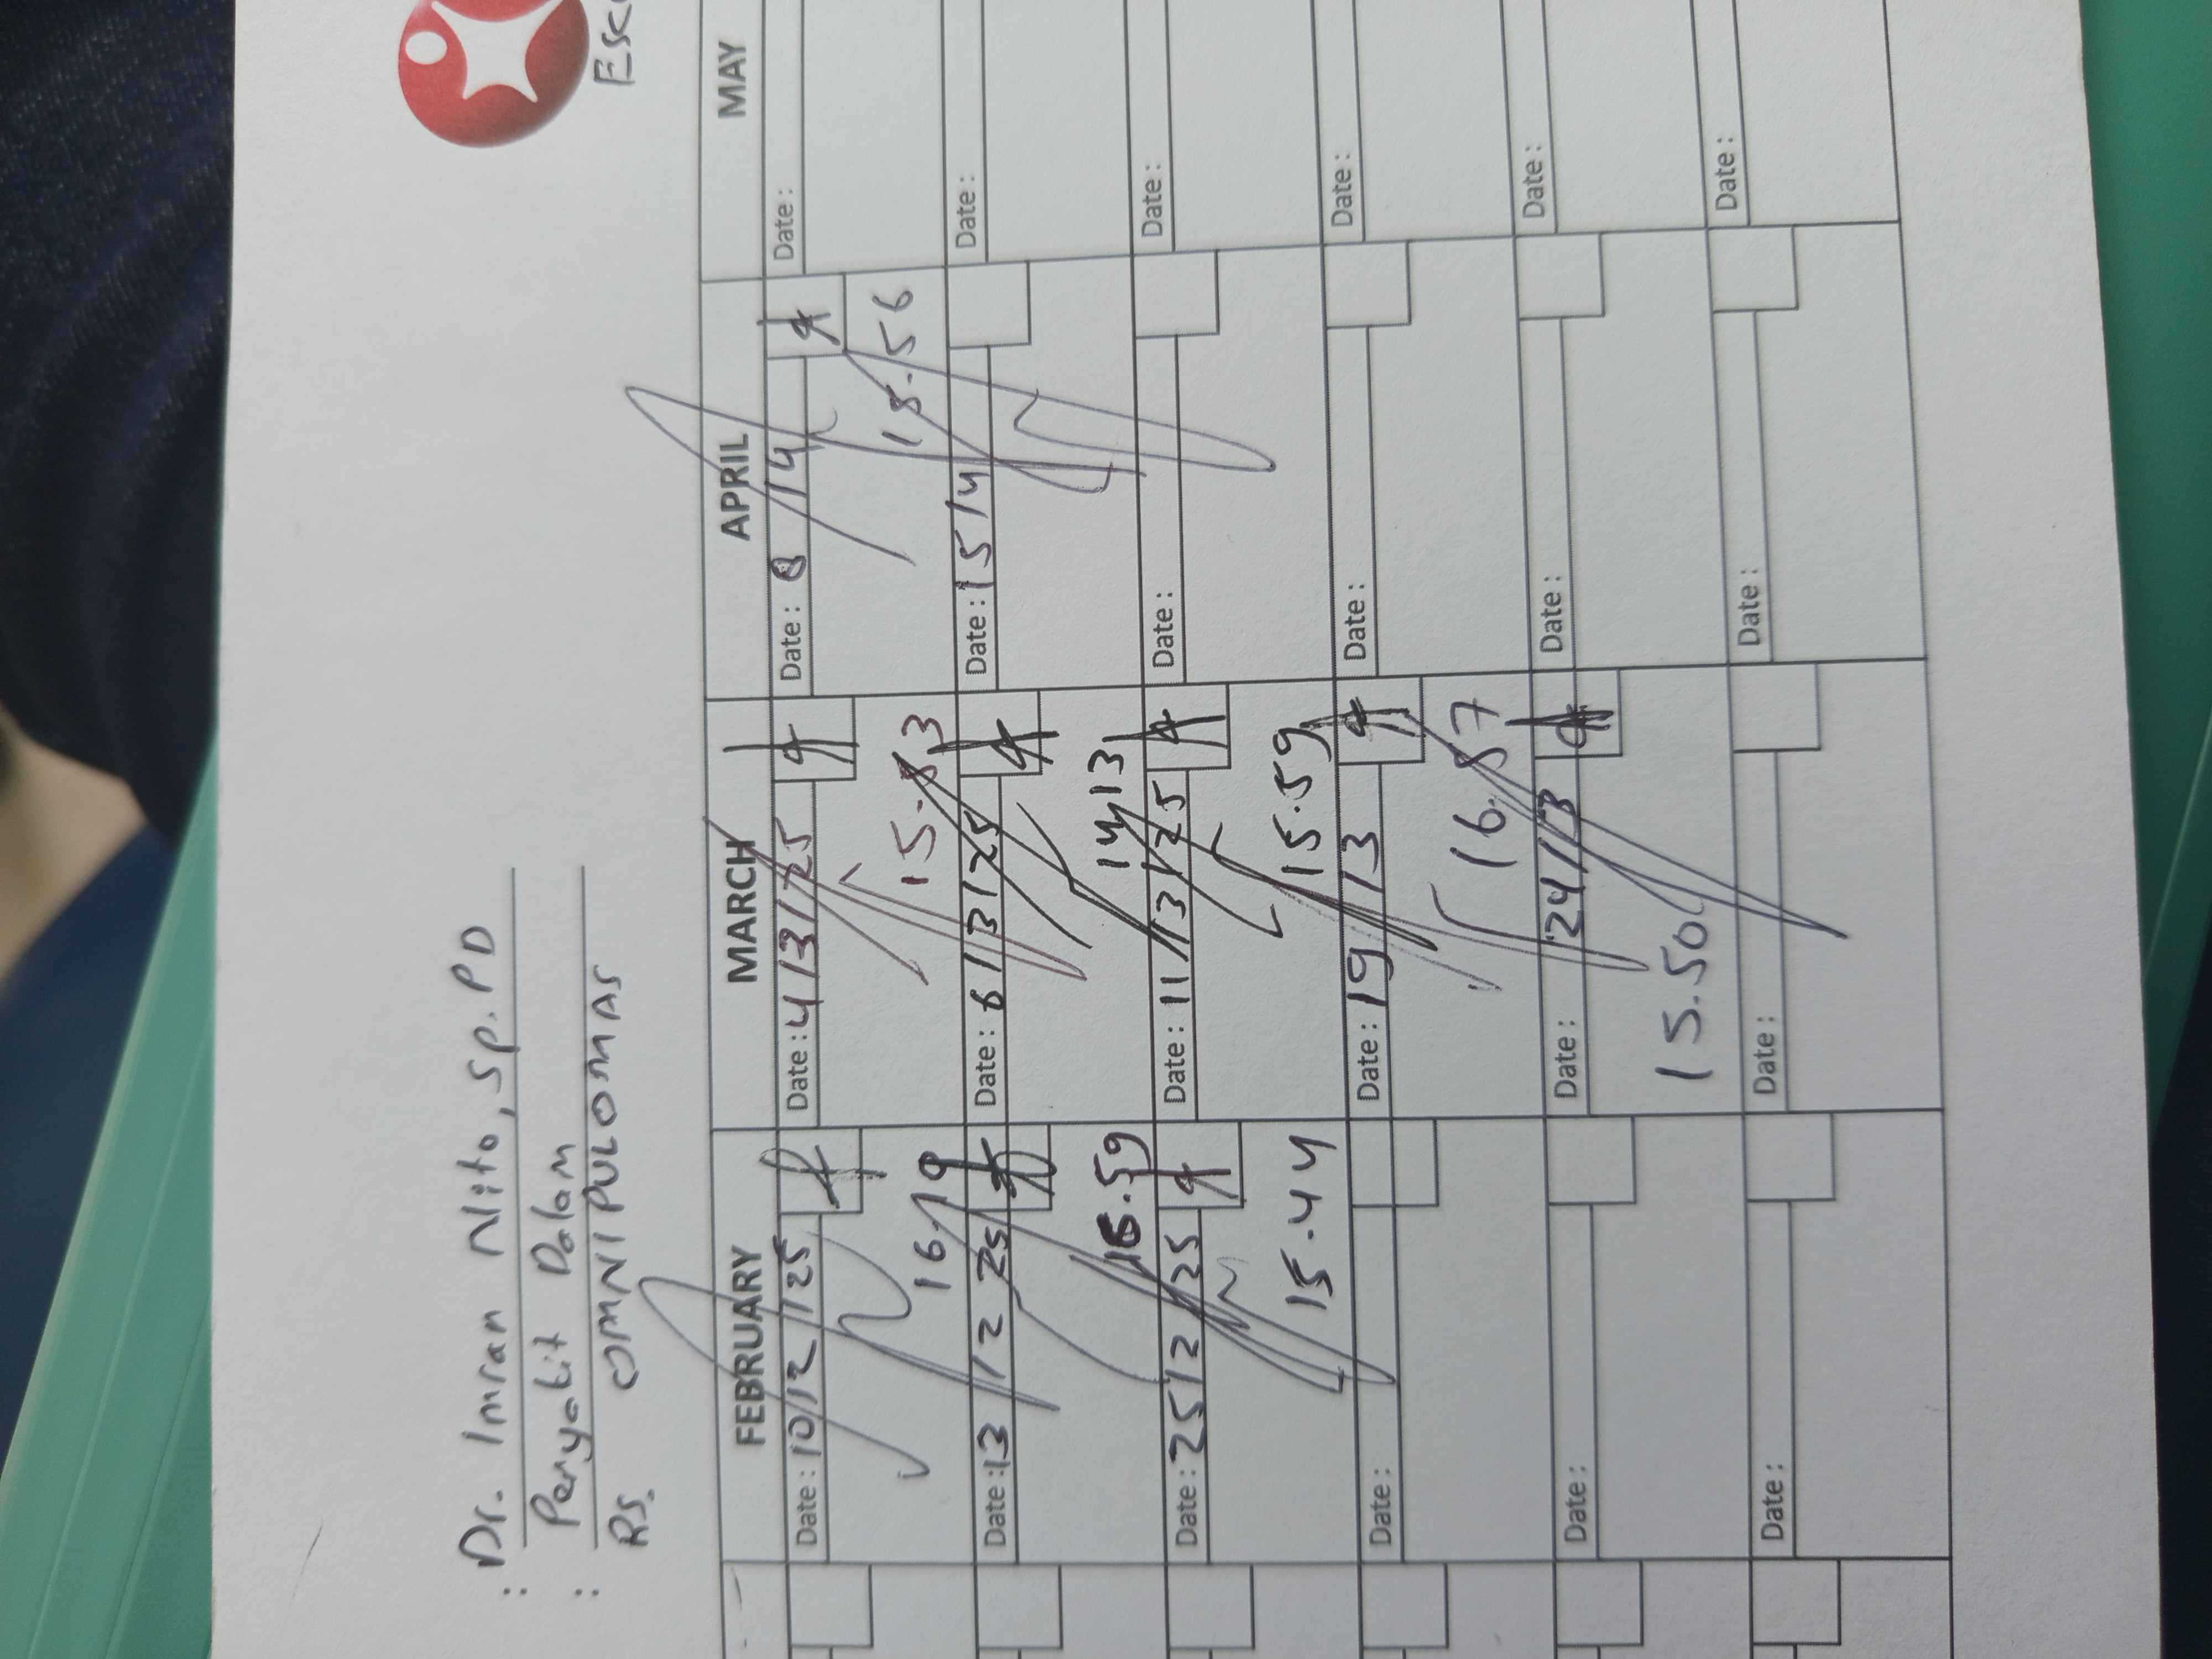 : Dr. Imran Nito, Sp. PD
: Penyakit Dalam
RS. OMNI PULOMAS
Esc
FEBRUARY MARCH APRIL MAY
Date : 10/2/25 Date : 4/3/25 Date : 8/4 Date :
16.19 15.53 15.56
Date : 13/2 25 Date : 6/3/25 Date : 15/4 Date :
16.59 14.13
Date : 25/2 25 Date : 11/3/25 Date : Date :
15.44 15.59
Date : Date : 19/3 Date : Date :
16.57
Date : Date : 24/3 Date : Date :
15.50
Date : Date : Date : Date :